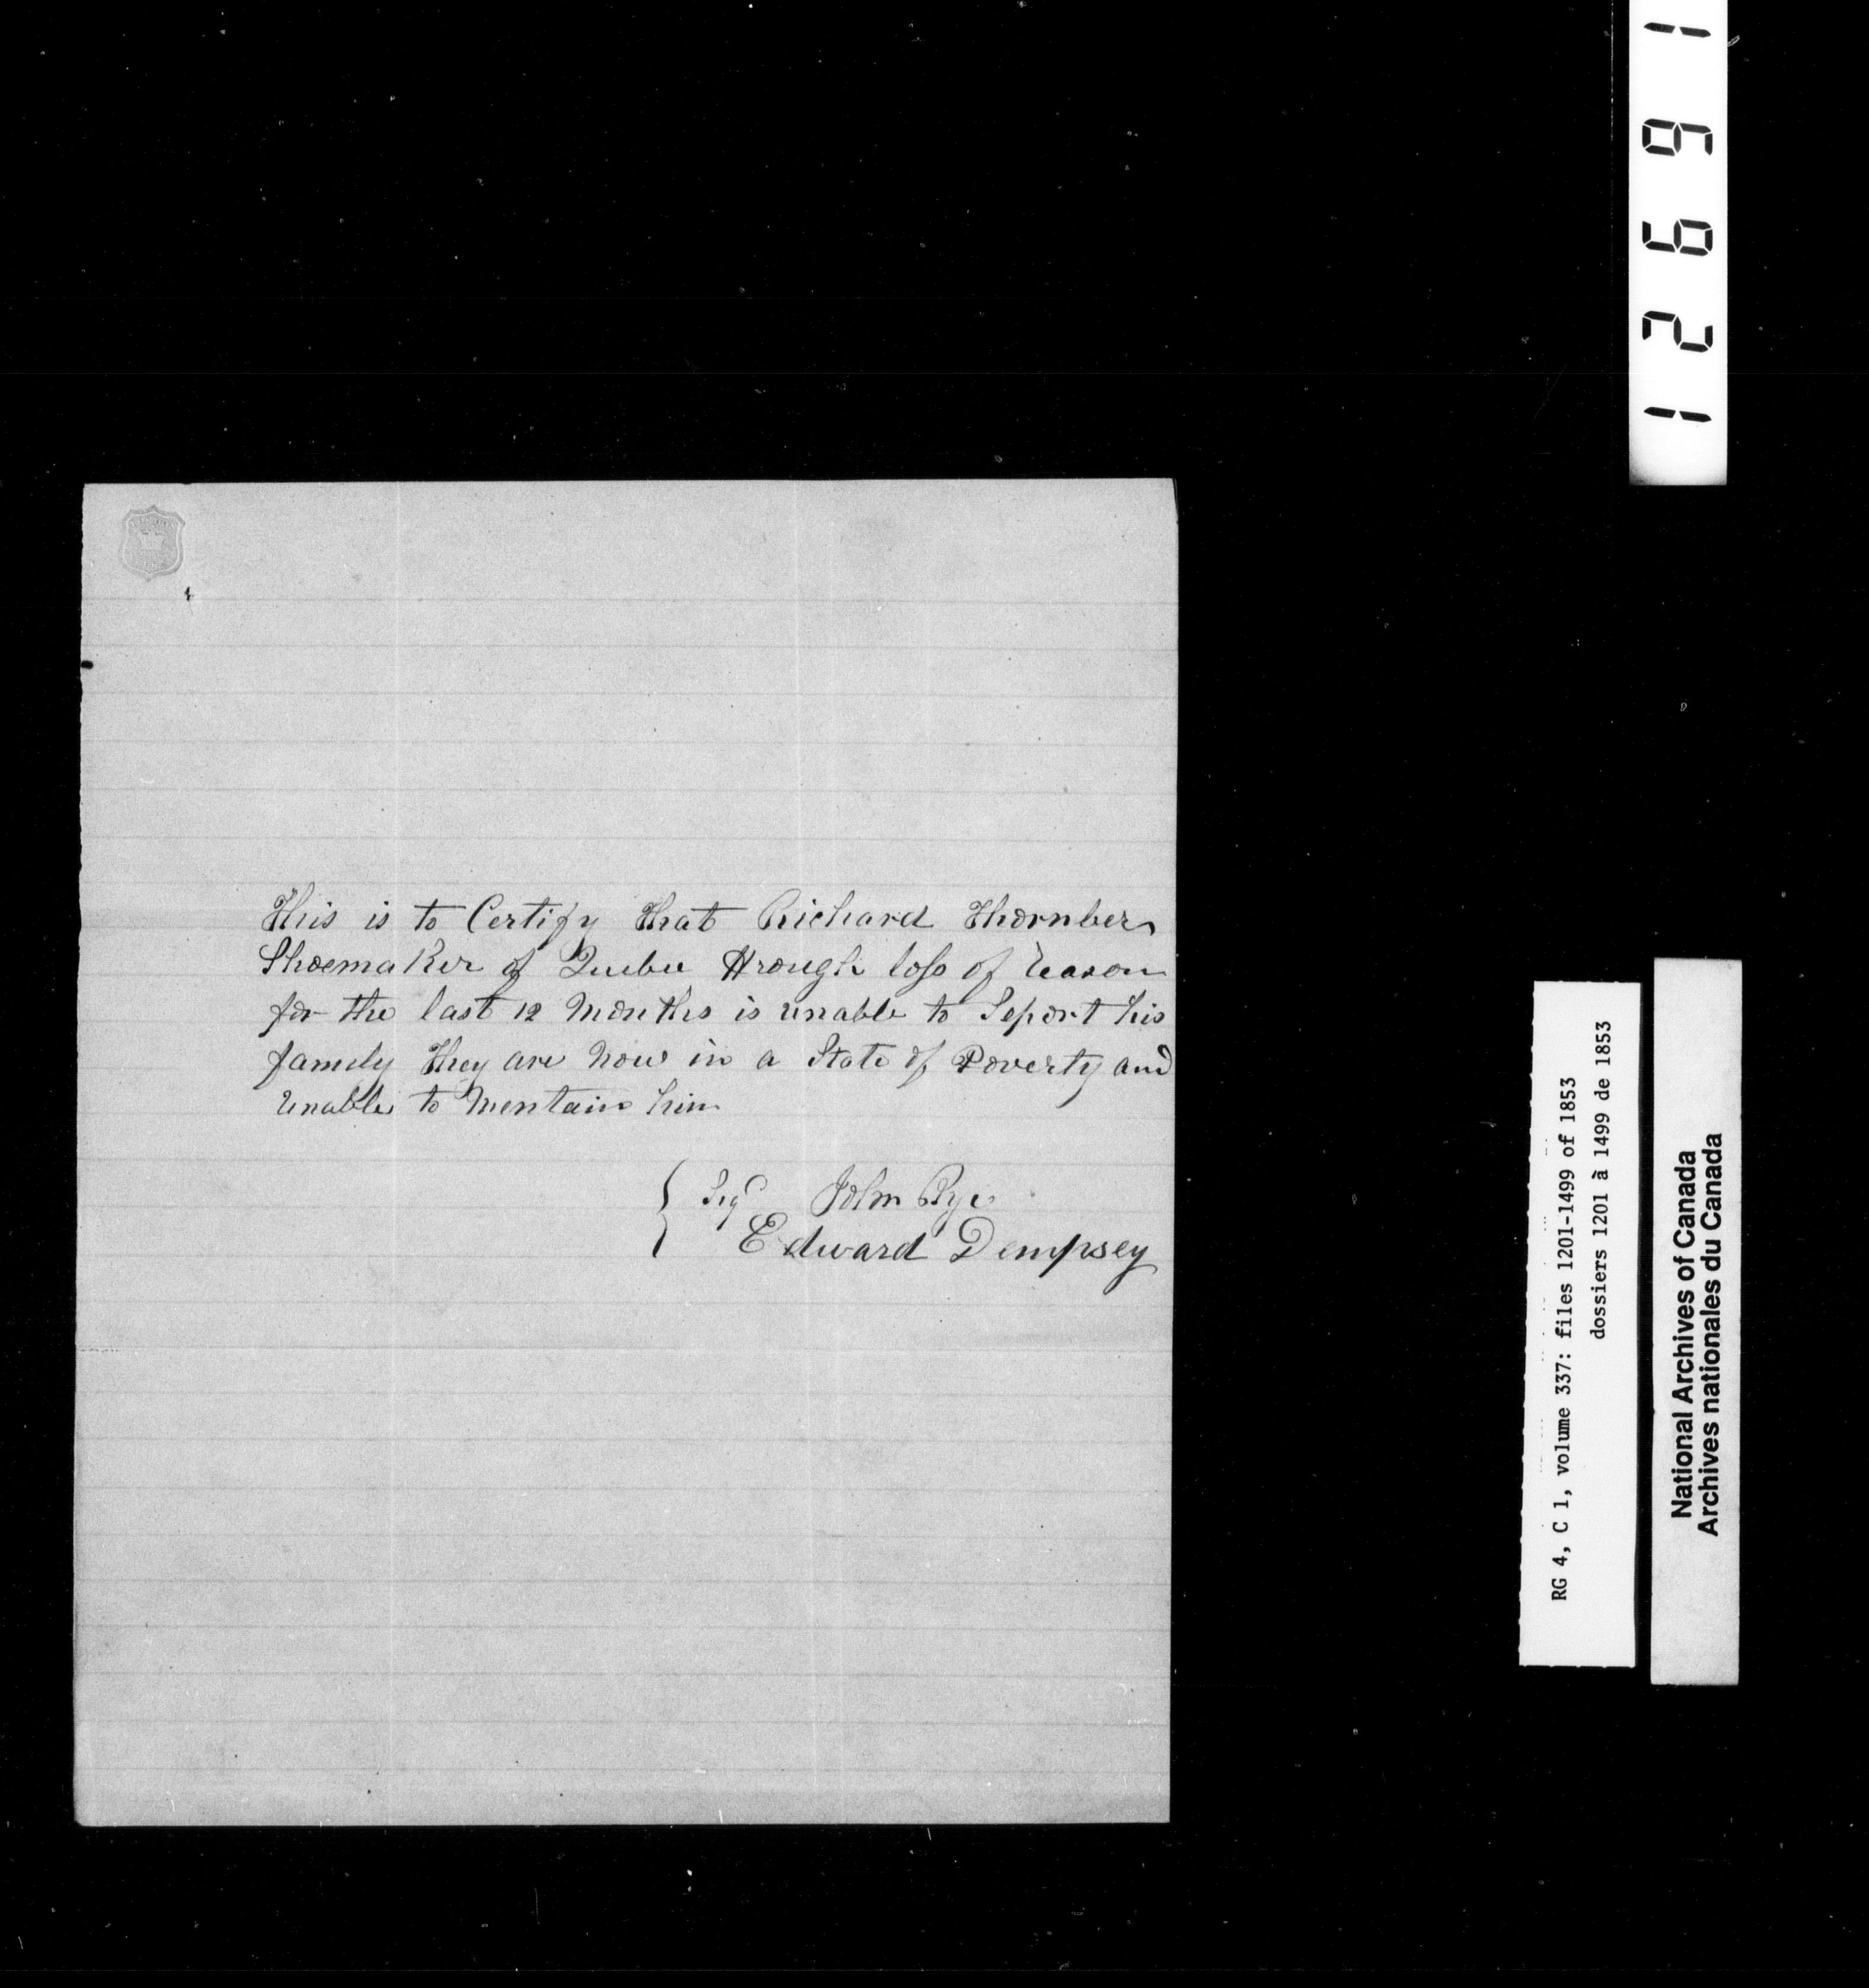 This is to Certify that Richard Thornber
Shoemaker of Quebec through loss of reason
for the last 12 Months is unable to Seport his
family they are now in a State of Poverty and
unable to Mentain him
Sigd John Rye
Edward Dempsey
12691
RG 4, C 1, volume 337: files 1201-1499 of 1853
dossiers 1201 à 1499 de 1853
National Archives of Canada
Archives nationales du Canada